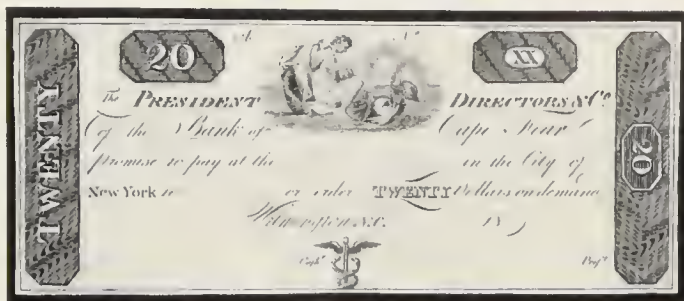 TWENTY
20
XX
20
The PRESIDENT DIRECTORS & Co.
of the Bank of Cape Fear
promise to pay at the in the City of
New York to or order TWENTY Dollars on demand
Wilmington N.C. 18
Cashr. Prest.